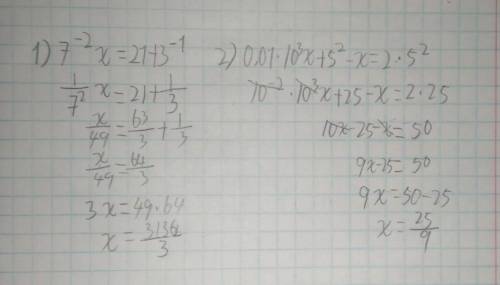 1) 7⁻² x = 21 + 3⁻¹
1/7² x = 21 + 1/3
x/49 = 63/3 + 1/3
x/49 = 64/3
3x = 49 · 64
x = 3136/3
2) 0,01 · 10³x + 5² - x = 2 · 5²
10⁻² · 10³x + 25 - x = 2 · 25
10x - 25 - x = 50
9x - 25 = 50
9x = 50 - 25
x = 25/9